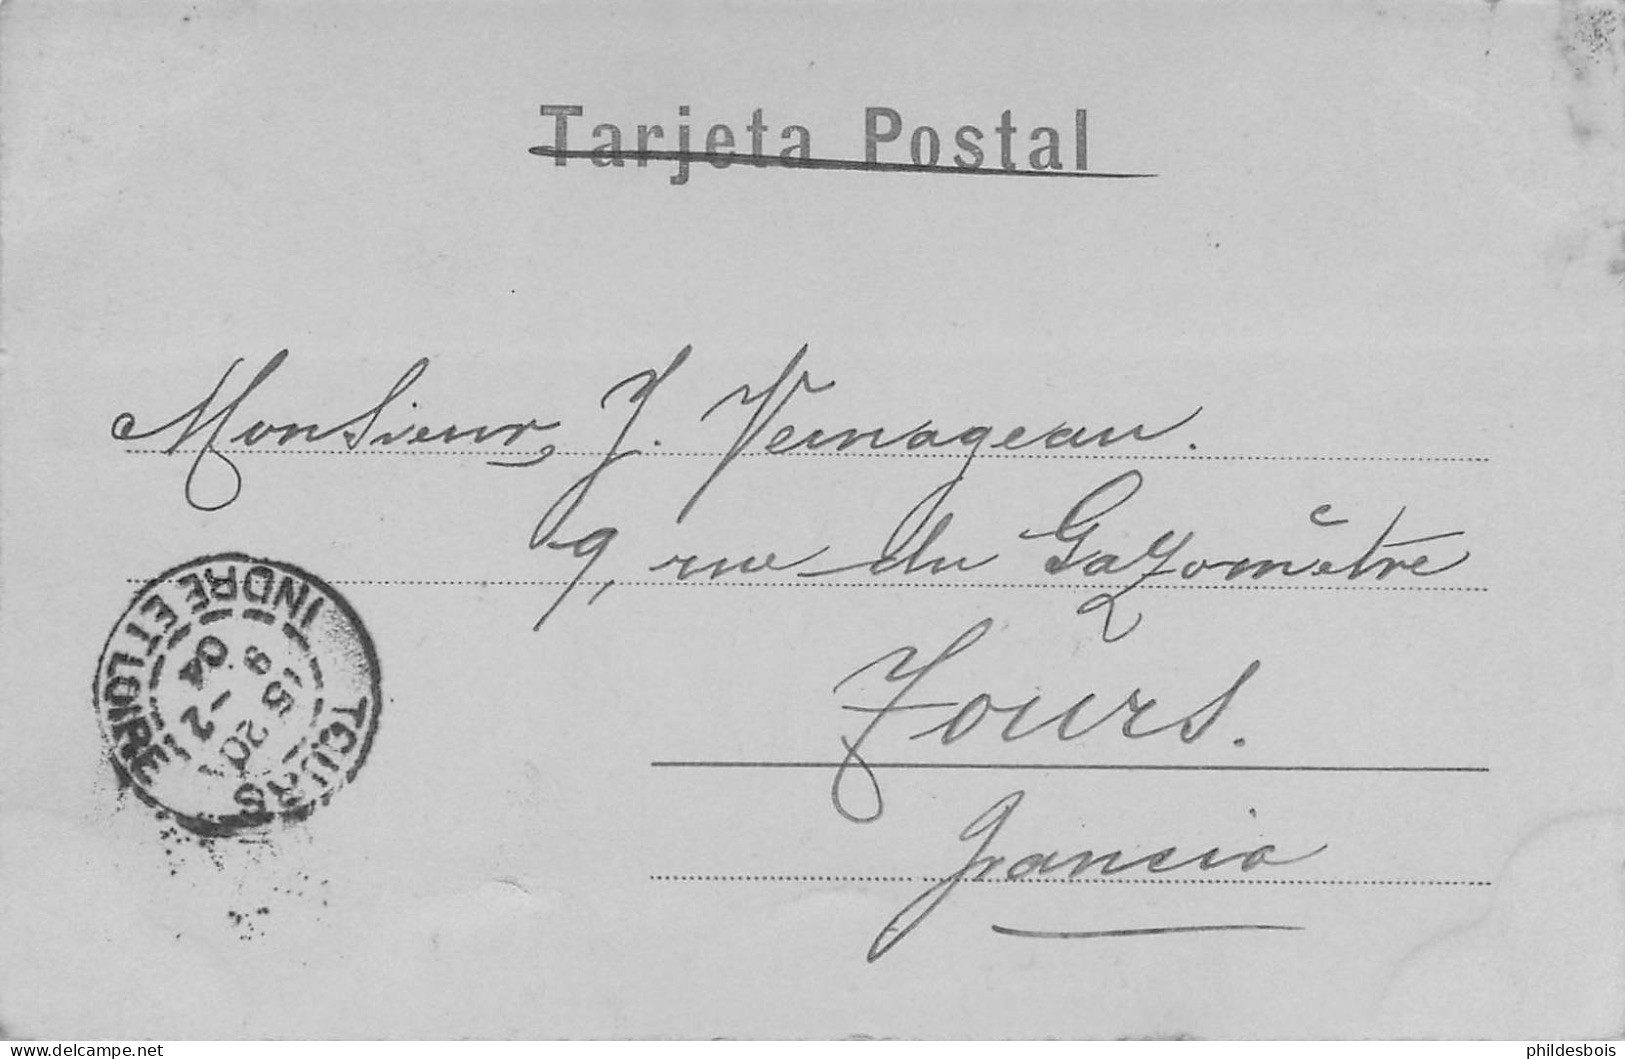 Tarjeta Postal
Monsieur J. Vernageau.
9, rue du Gazomètre
Tours.
Francia
TOURS
INDRE ET LOIRE
15 20
9 -2
04
delcampe.net
phildesbois